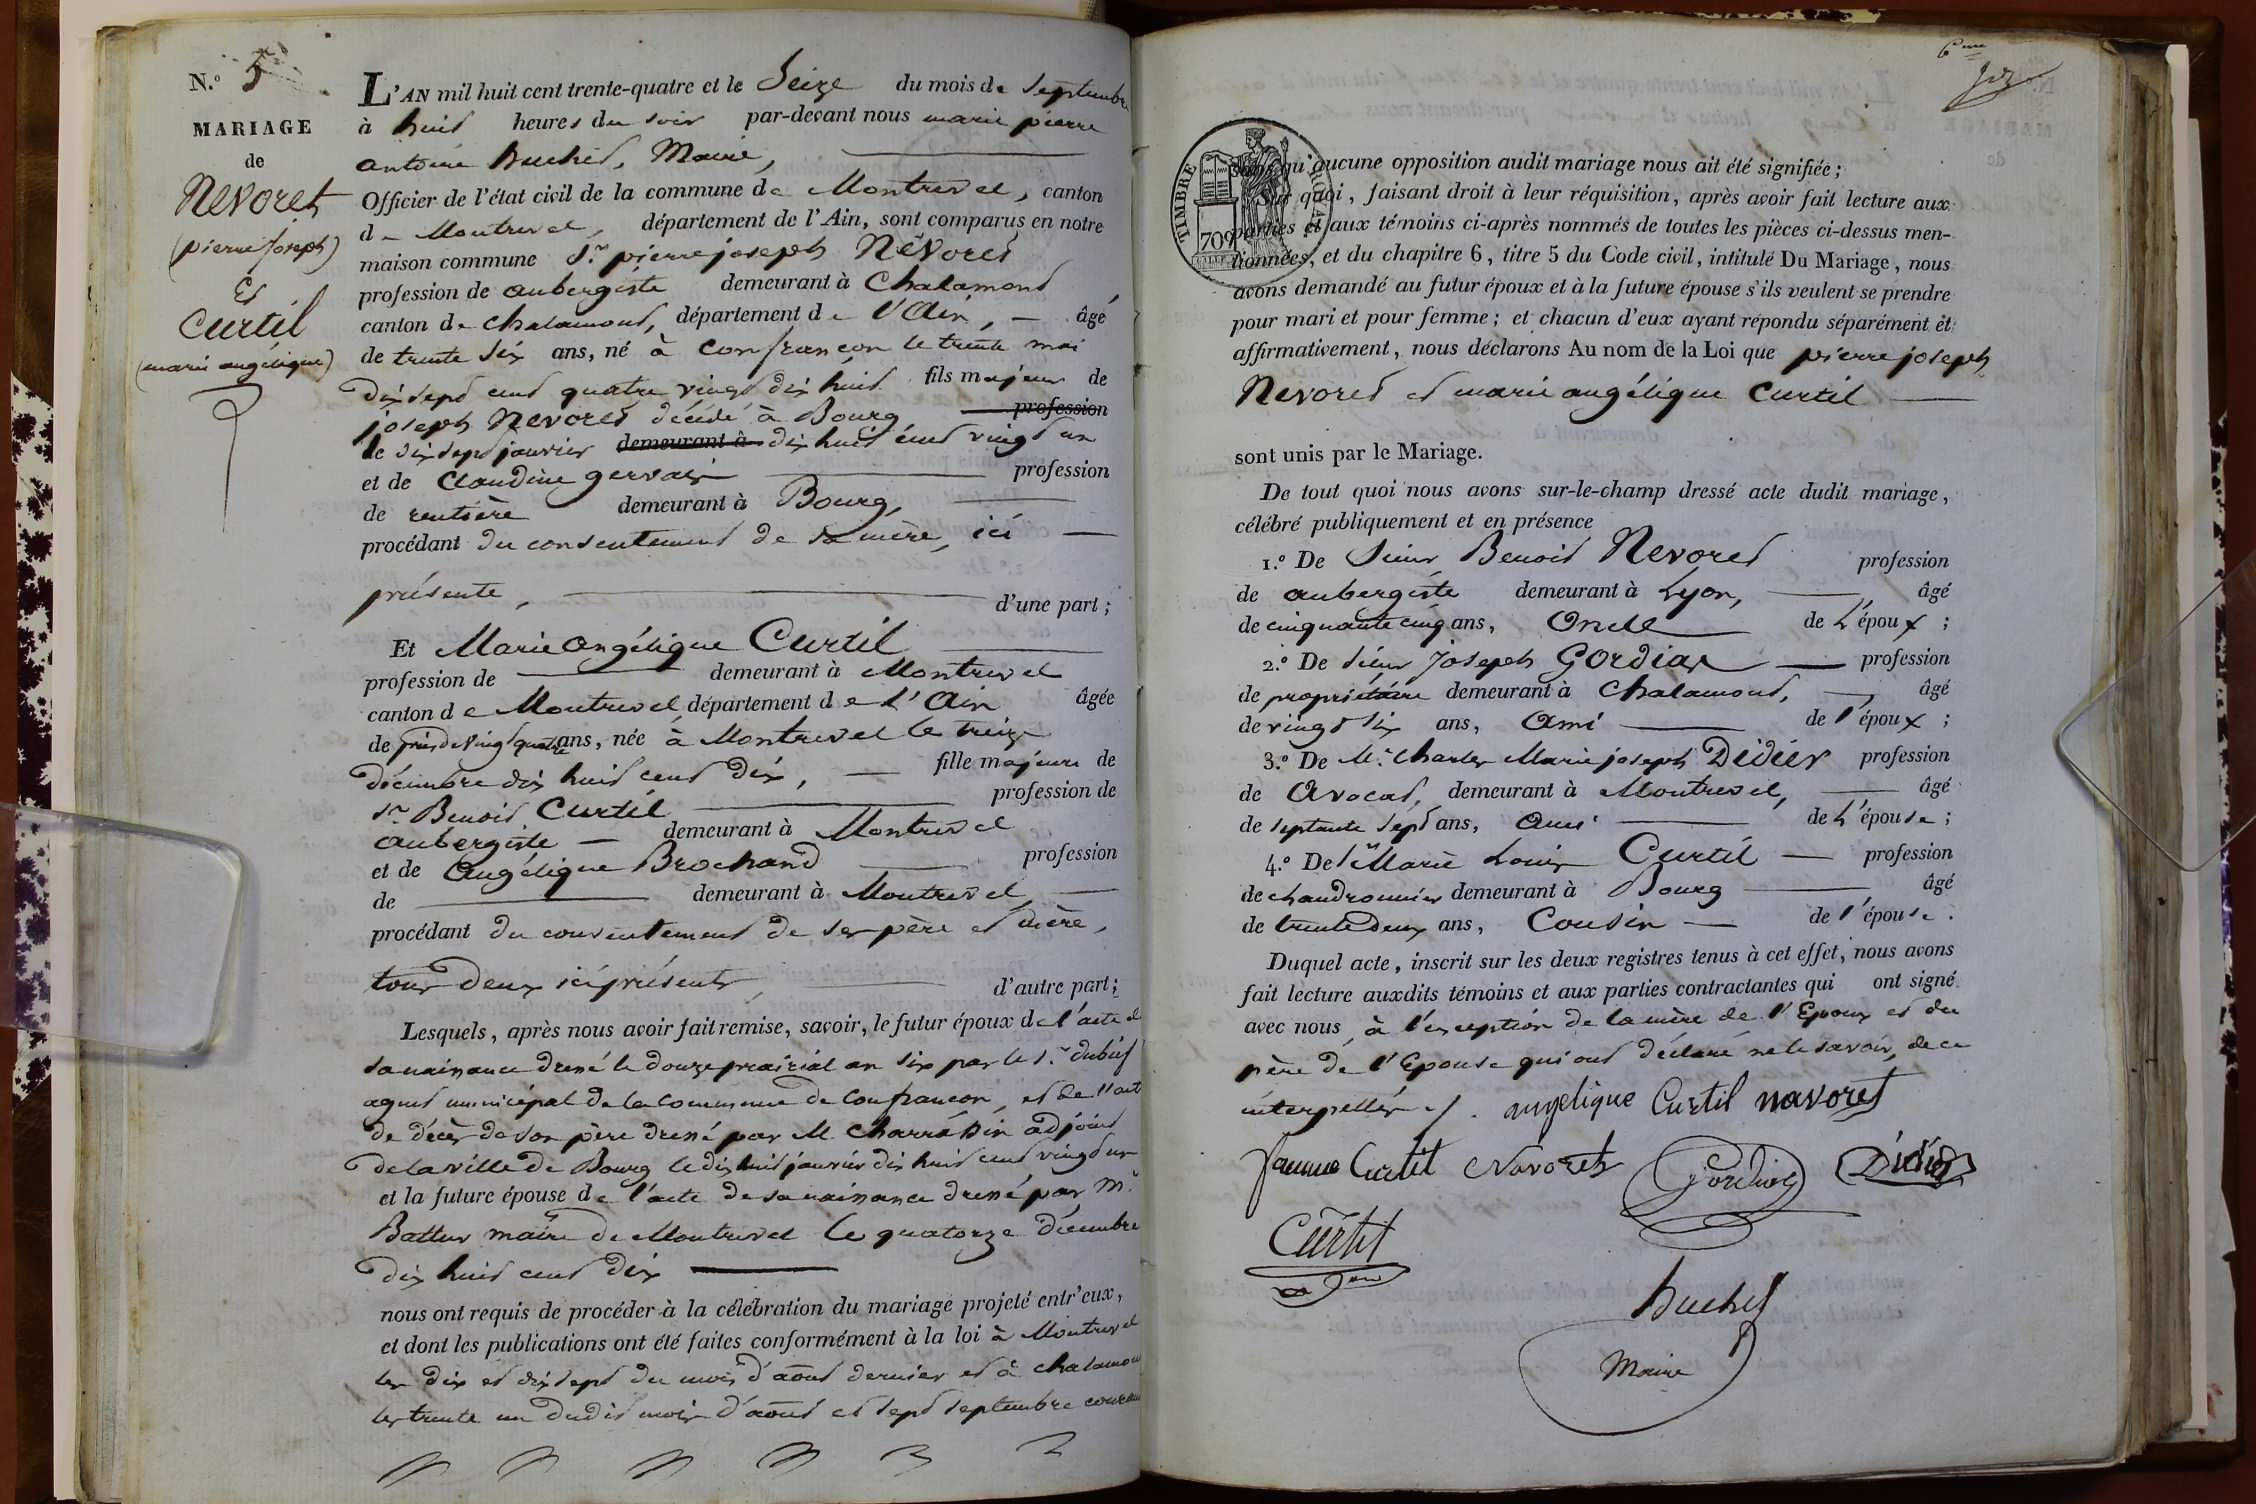 N.° 5
MARIAGE
de
Nevoret
(pierre joseph)
Et
Curtil
(marie angélique)
L'AN mil huit cent trente-quatre et le Seize du mois de Septembre
à huit heures du soir par-devant nous marie pierre
antoine Buchet, Maire,
Officier de l'état civil de la commune de Montrevel, canton
de Montrevel, département de l'Ain, sont comparus en notre
maison commune Sr. pierre joseph Névoret
profession de aubergiste demeurant à Chalamont,
canton de chalamont, département de l'Ain, âgé
de trente six ans, né à confrançon le trente mai
dix sept cent quatre vingt dix huit fils majeur de
joseph Nevoret décédé à Bourg profession
le dix sept janvier demeurant à dix huit cent vingt un
et de Claudine gervais profession
de rentière demeurant à Bourg,
procédant du consentement de sa mère, ici
présente, d'une part;
Et Marie Angélique Curtil
profession de demeurant à Montrevel
canton de Montrevel département de l'Ain âgée
de près de vingt quatre ans, née à Montrevel le treize
décembre dix huit cent dix, fille majeure de
Sr. Benoit Curtil profession de
aubergiste demeurant à Montrevel
et de Angélique Brochand profession
de demeurant à Montrevel,
procédant du consentement de ses père et mère,
tous deux ici présents, d'autre part;
Lesquels, après nous avoir fait remise, savoir, le futur époux de l'acte de
sa naissance dressé le douze prairial an six par le Sr. dubief
agent municipal de la commune de Confrancon, et de l'acte
de décès de son père dressé par M. Charrassin adjoint
de la ville de Bourg le dix huit janvier dix huit cent vingt un
et la future épouse de l'acte de sa naissance dressé par Mr.
Battur maire de Montrevel le quatorze décembre
dix huit cent dix
nous ont requis de procéder à la célébration du mariage projeté entr'eux,
et dont les publications ont été faites conformément à la loi à Montrevel
les dix et dix sept du mois d'août dernier et à chalamont
les trente un dudit mois d'août et sept septembre courant
6me
TIMBRE ROYAL
70c
sans qu'aucune opposition audit mariage nous ait été signifiée;
Sur quoi, faisant droit à leur réquisition, après avoir fait lecture aux
parties et aux témoins ci-après nommés de toutes les pièces ci-dessus men-
tionnées, et du chapitre 6, titre 5 du Code civil, intitulé Du Mariage, nous
avons demandé au futur époux et à la future épouse s'ils veulent se prendre
pour mari et pour femme; et chacun d'eux ayant répondu séparément et
affirmativement, nous déclarons Au nom de la Loi que pierre joseph
Nevoret et marie angélique Curtil
sont unis par le Mariage.
De tout quoi nous avons sur-le-champ dressé acte dudit mariage,
célébré publiquement et en présence
1.° De Sieur Benoit Nevoret profession
de aubergiste demeurant à Lyon, âgé
de cinquante cinq ans, Oncle de l'époux;
2.° De Sieur Joseph Gordiax profession
de propriétaire demeurant à Chalamont, âgé
de vingt six ans, Ami de l'époux;
3.° De Mr. Charles Marie joseph Didier profession
de Avocat, demeurant à Montrevel, âgé
de septante sept ans, Ami de l'épouse;
4.° De Sr Marie Louis Curtil profession
de chaudronnier demeurant à Bourg âgé
de trente deux ans, Cousin de l'épouse.
Duquel acte, inscrit sur les deux registres tenus à cet effet, nous avons
fait lecture auxdits témoins et aux parties contractantes qui ont signé
avec nous, à l'exception de la mère de l'Epoux et du
père de l'Epouse qui ont déclaré ne le savoir, de ce
interpellés. angelique Curtil navoret
famme Curtil Navoret Gordiax Didier
Curtil
Buchet
Maire